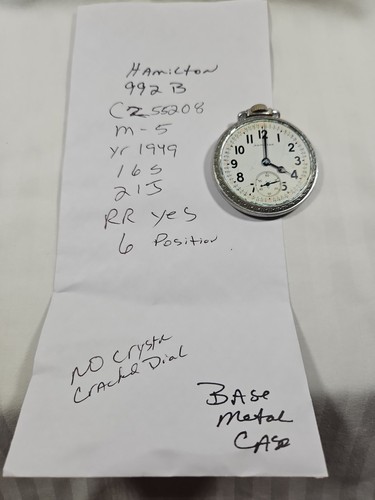 Hamilton
992 B
C255208
M-5
yr 1949
16s
21J
RR yes
6 Position
NO Crystal
Cracked Dial
BASe
Metal
CASe
11 12 1
10 2
9 3
8 4
7 5